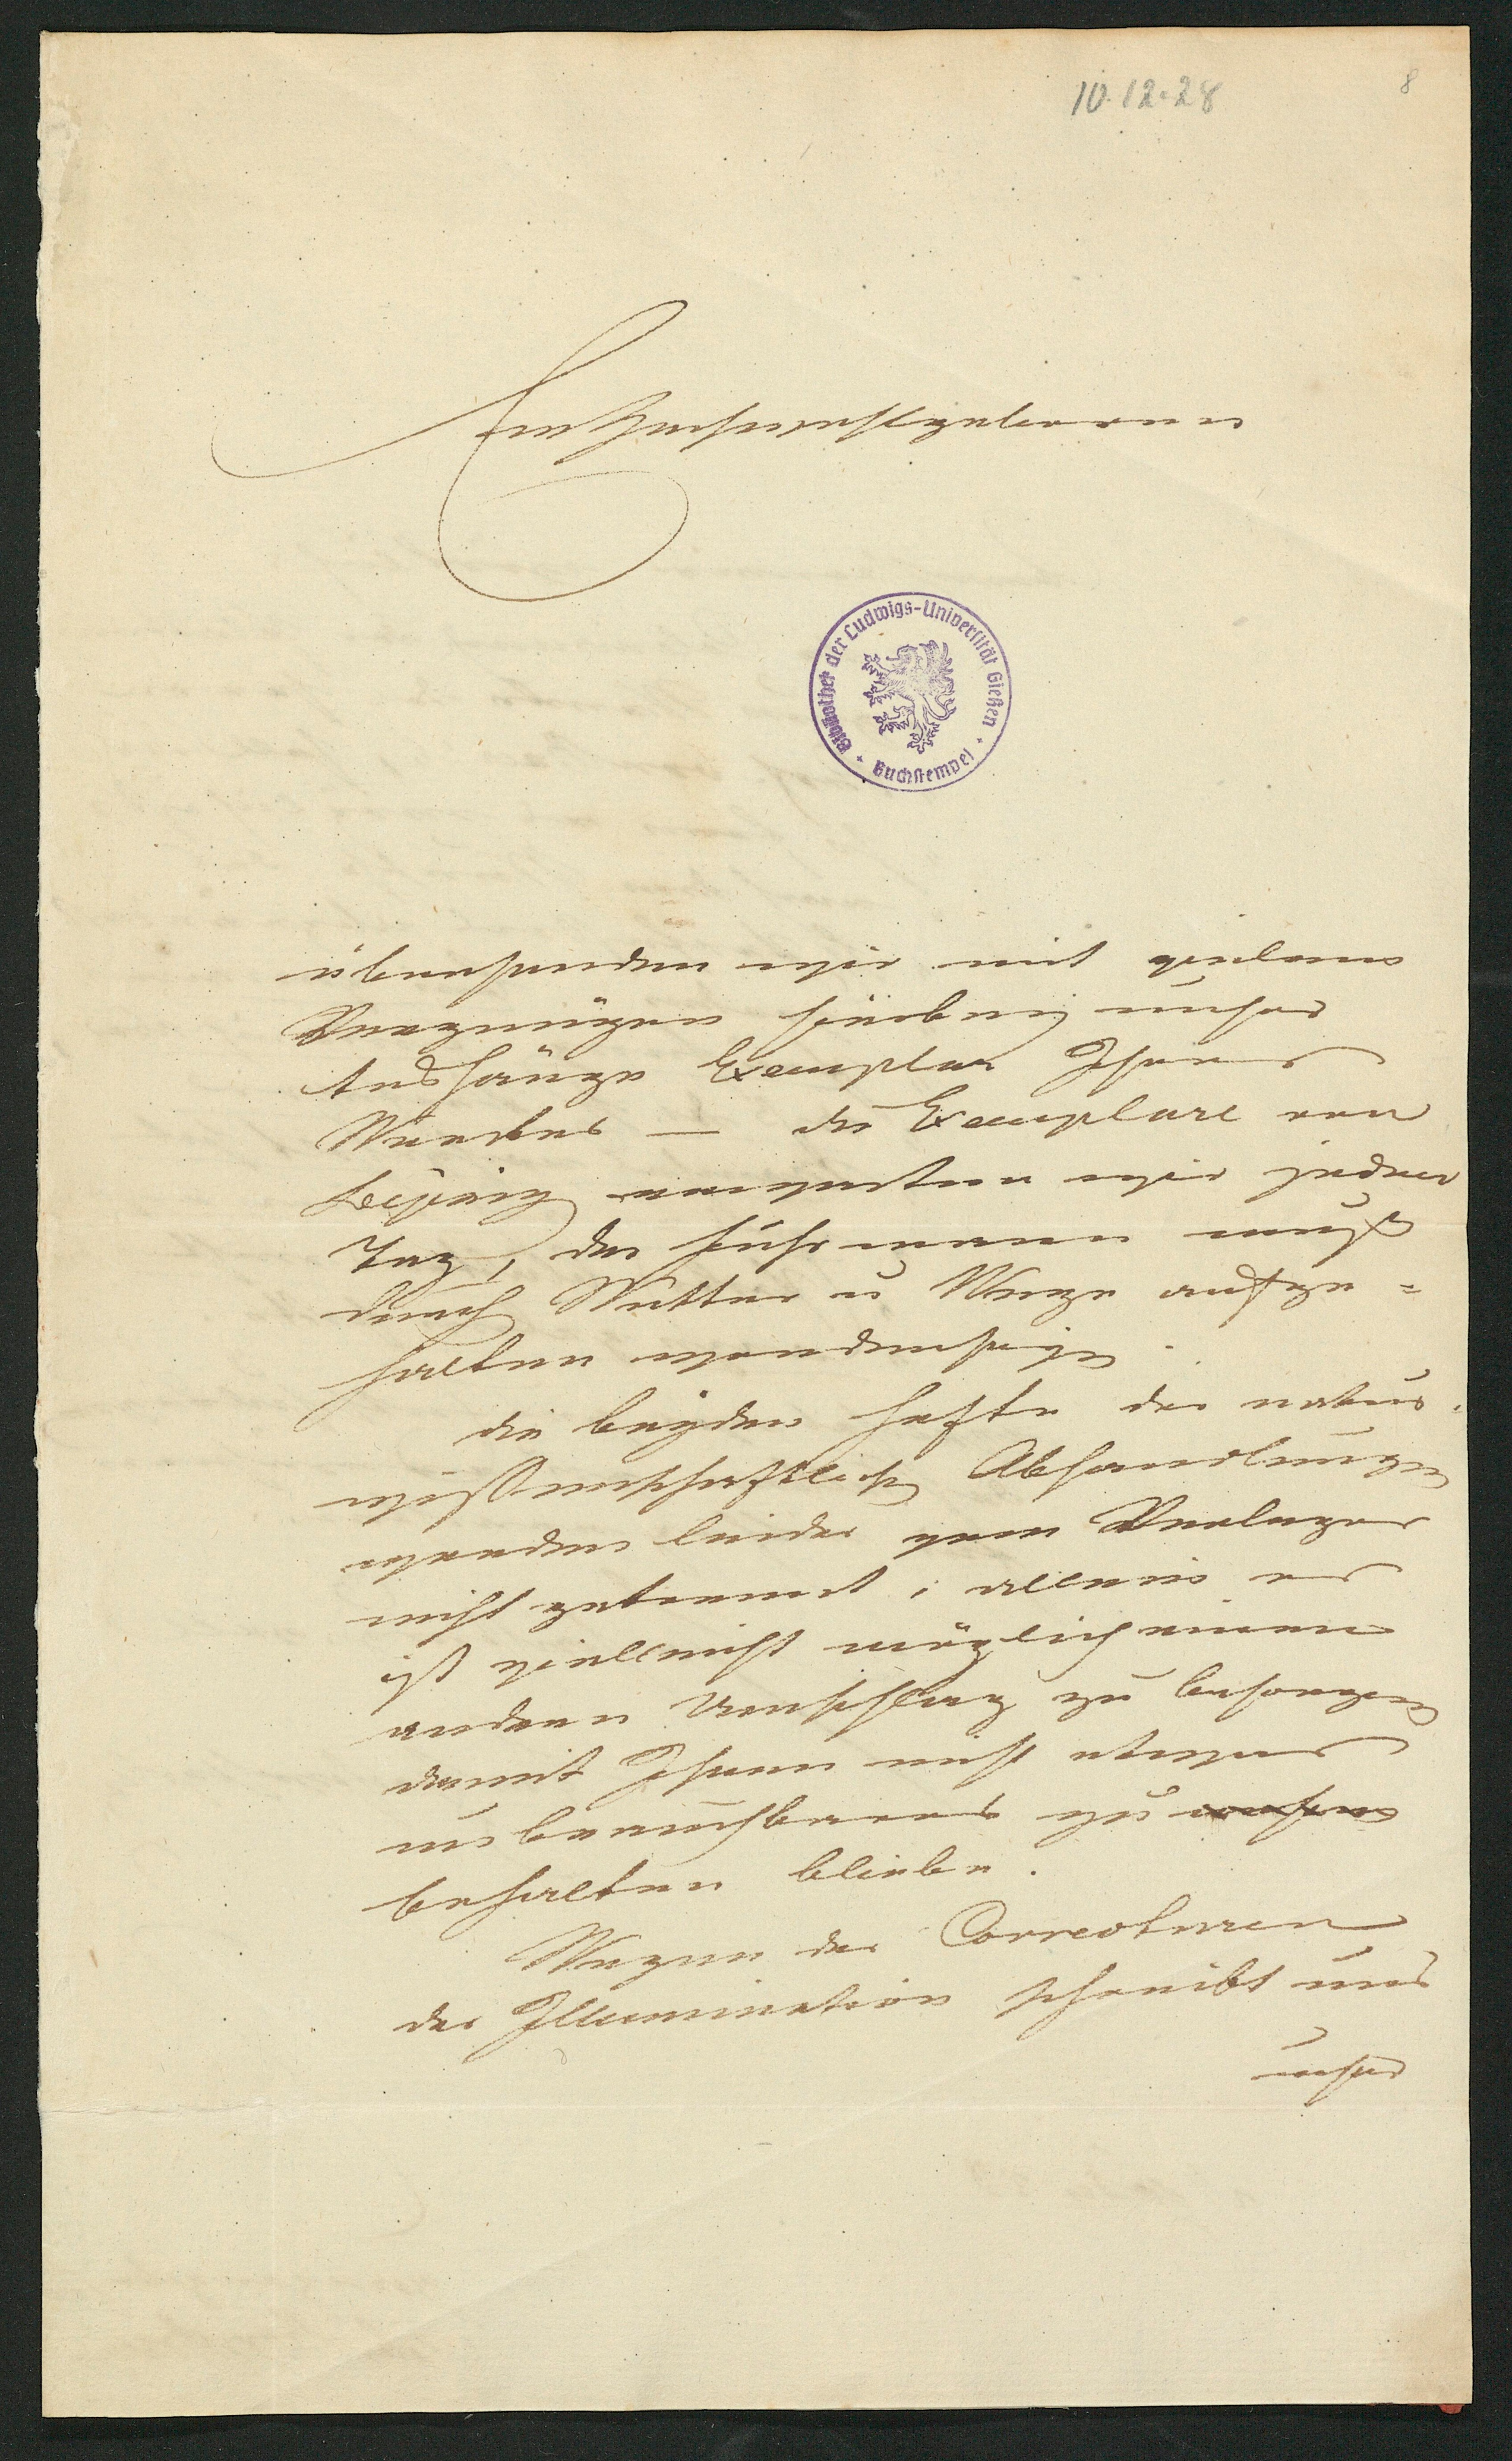 10.12.28
8
Ew Hochwohlgeboren
Bibliothek der Ludwigs-Universität Gießen
Buchstempel
übersenden wir mit vielem
Vergnügen hierbei unser
Aushänge Exemplar Ihres
Werkes — die Exemplare von
Leipzig erwarten wir jeden
Tag, der Fuhrmann muß
durch Wetter u Wege aufge=
halten worden seyn.
die beyden Hefte der natur.
wissenschaftlich Abhandlungen
werden leider vom Verleger
nicht getrennt; allein es
ist vielleicht möglich einen
andern Umschlag zu besorgen
damit Ihnen nicht etwas
unbrauchbares zu
behalten bliebe.
Wegen der Correcturen
der Illumination schreibt uns
unser